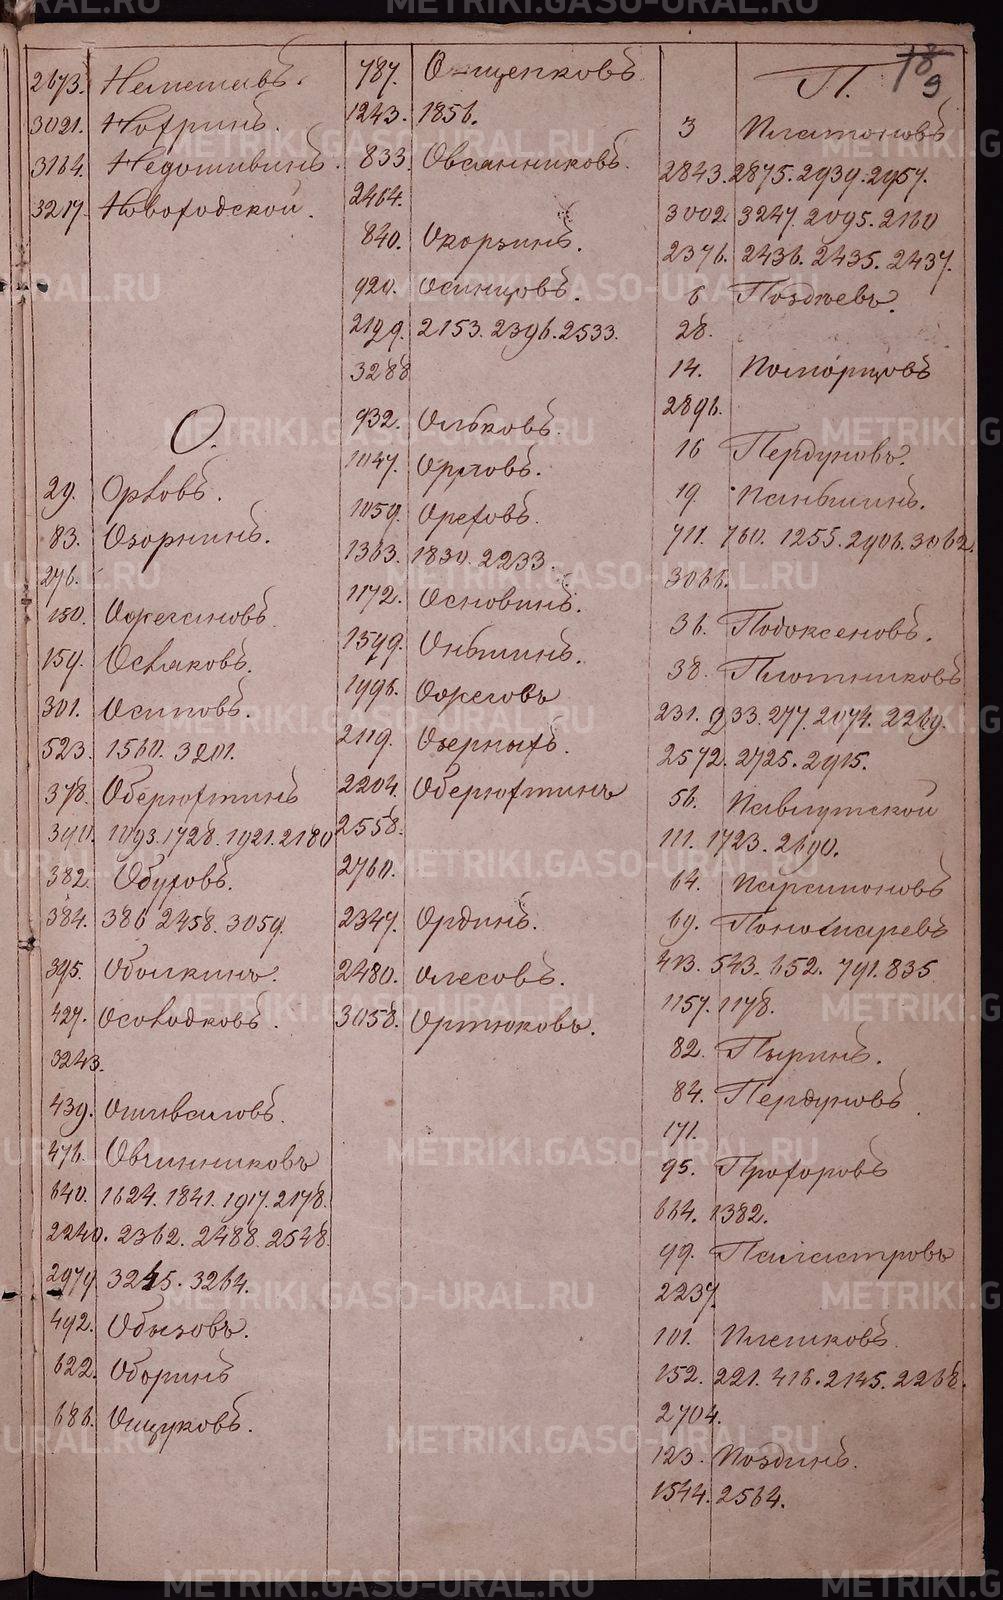 2673. Неметевъ.
3021. Нохринъ.
3164. Недошивинъ.
3217. Новогодской.
О.
29. Орловъ.
83. Озорнинъ.
276.
150. Ожегановъ
159. Осляковъ.
301. Осиповъ.
523. 1560. 3201.
378. Оберюхтинъ
390. 1093. 1728. 1921. 2180
382. Обуховъ.
384. 386 2458. 3059.
395. Оболкинъ.
427. Осолодковъ.
3243.
439. Ошиваловъ.
476. Овчинниковъ
640. 1624. 1841. 1917. 2178.
2240. 2362. 2488. 2548.
2979 3245. 3264.
492. Обызовъ.
622. Оборинъ
686. Ощуковъ.
787. О-щепковъ
1243. 1856.
833. Овсянниковъ.
2464.
840. Окорзинъ.
920. Осинцовъ.
2199. 2153. 2396. 2533.
3288
932. Ольковъ.
1047. Орловъ.
1059. Ореховъ.
1363. 1830. 2233.
1172. Основинъ.
1599. Оньшинъ.
1996. Ожеговъ
2119. Озерныхъ.
2204. Оберюхтинъ
2558.
2760.
2347. Ординъ.
2480. Олесовъ.
3058. Ортюковъ.
18
9
П.
3 Платоновъ
2843. 2875. 2939. 2957.
3002. 3247. 2095. 2160
2376. 2436. 2435. 2437.
6 Позджевъ.
28.
14. Поморцовъ
2896.
16 Пердуновъ.
19. Паньшинъ.
711. 760. 1255. 2906. 3062.
3066.
36. Подоксеновъ.
38. Плотниковъ
231. 233. 277. 2074. 2269.
2572. 2725. 2915.
56. Павлутской
111. 1723. 2690.
64. Парамоновъ
69. Пономаревъ
413. 543. 652. 791. 835
1157. 1178.
82. Пыринъ.
84. Пердуновъ
171.
95. Прохоровъ
664. 1382.
99. Паластровъ
2237.
101. Плешковъ.
152. 221. 416. 2145. 2268.
2704.
123. Поздинъ.
1544. 2564.